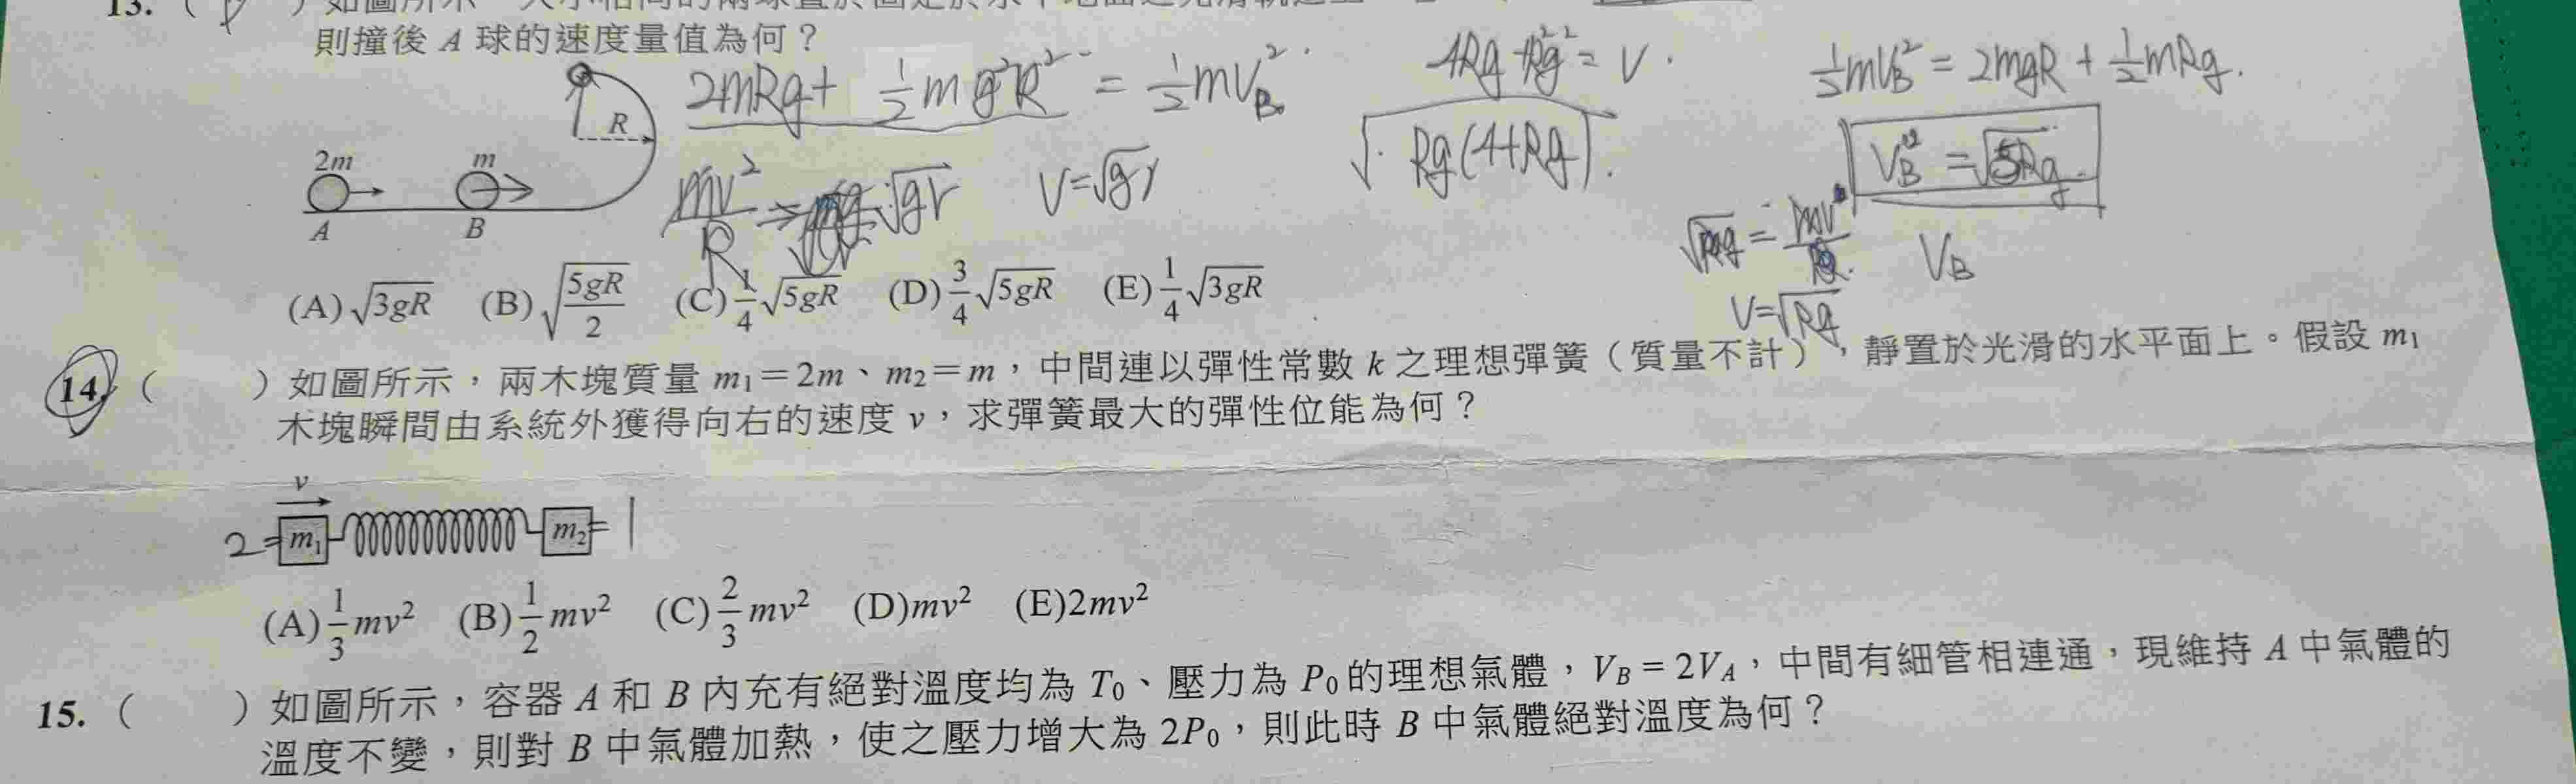 13. (
則撞後 A 球的速度量值為何？
2mRg + 1/2 m g²R² = 1/2 mV_B²
1/2 mV_B² = 2mgR + 1/2 mRg.
√Rg(4+Rg).
V_B = √5Rg
R
2m
m
A
B
mv²/R
√gr
V=√gr
V_B
V=√Rg
(A)√3gR (B)√(5gR/2) (C)1/4√5gR (D)3/4√5gR (E)1/4√3gR
14. ( ) 如圖所示，兩木塊質量 m₁＝2m、m₂＝m，中間連以彈性常數 k 之理想彈簧（質量不計），靜置於光滑的水平面上。假設 m₁
木塊瞬間由系統外獲得向右的速度 v，求彈簧最大的彈性位能為何？
v
2= m₁ m₂ =1
(A)1/3mv² (B)1/2mv² (C)2/3mv² (D)mv² (E)2mv²
15. ( ) 如圖所示，容器 A 和 B 內充有絕對溫度均為 T₀、壓力為 P₀的理想氣體，V_B = 2V_A，中間有細管相連通，現維持 A 中氣體的
溫度不變，則對 B 中氣體加熱，使之壓力增大為 2P₀，則此時 B 中氣體絕對溫度為何？